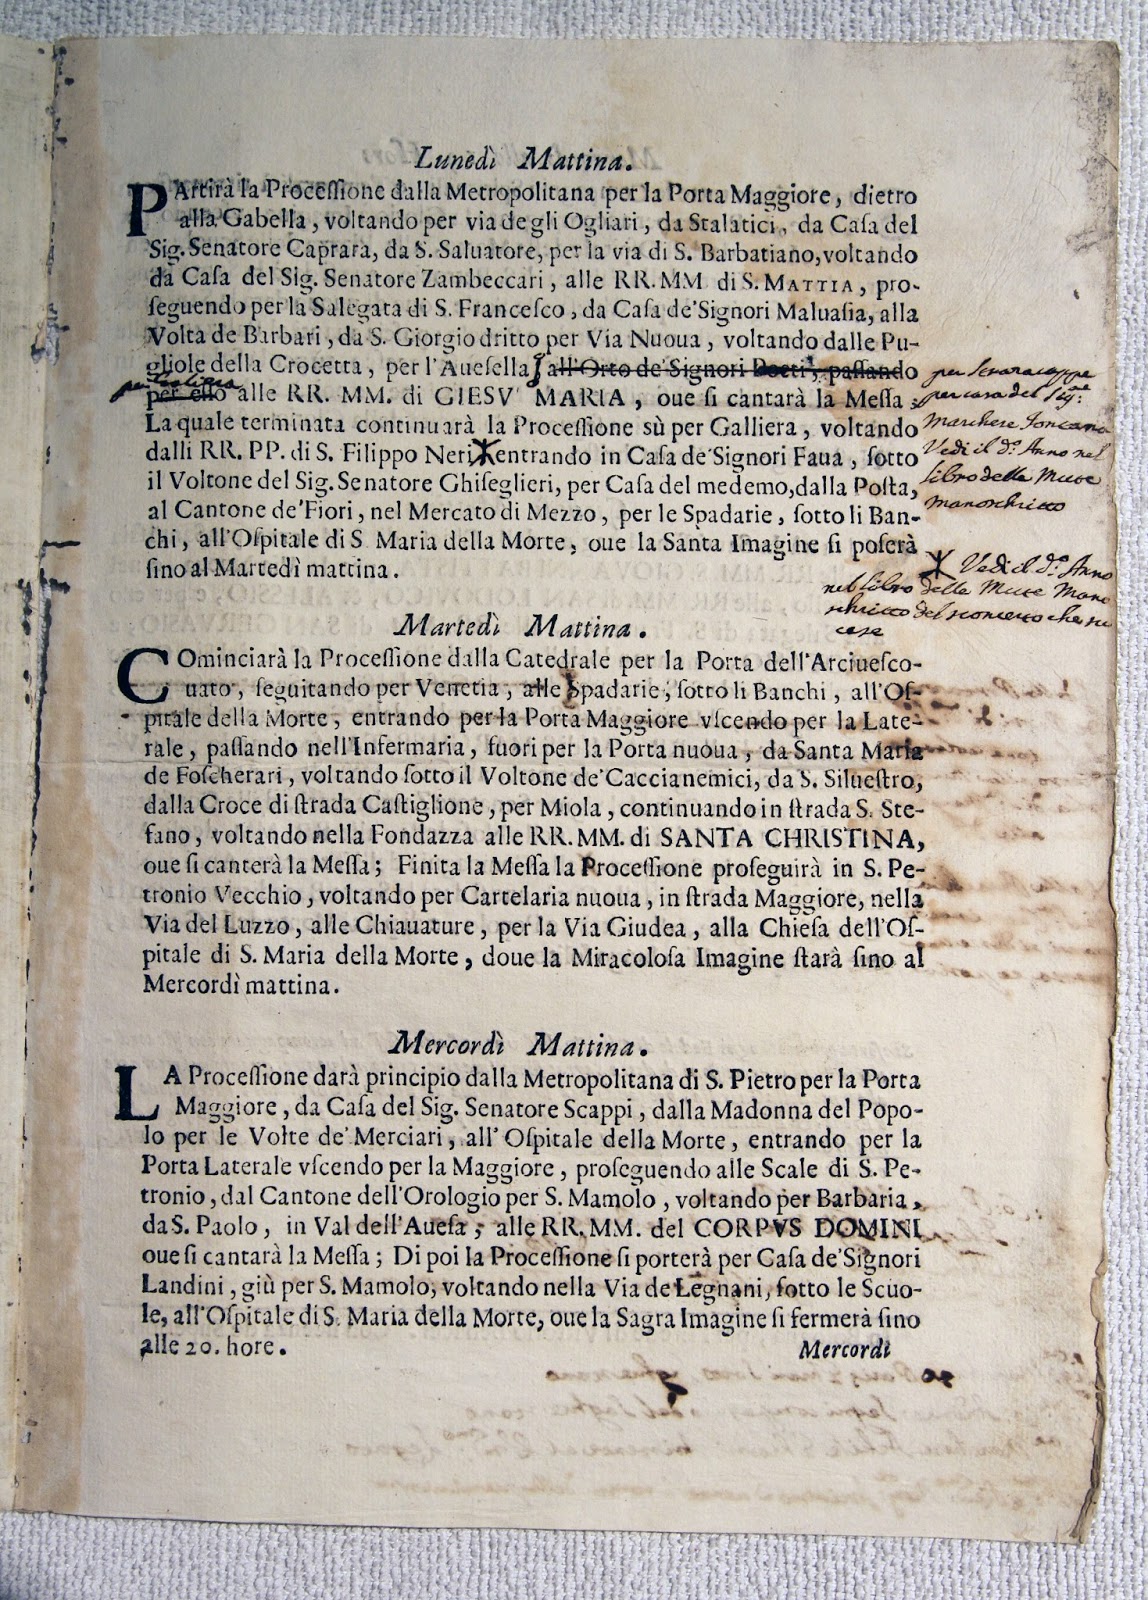 Lunedì Mattina.
PArtirà la Proceſſione dalla Metropolitana per la Porta Maggiore, dietro
alla Gabella, voltando per via degli Ogliari, da Stalatici, da Caſa del
Sig. Senatore Caprara, da S. Saluatore, per la via di S. Barbatiano, voltando
da Caſa del Sig. Senatore Zambeccari, alle RR. MM di S. MATTIA, pro-
ſeguendo per la Salegata di S. Franceſco, da Caſa de'Signori Maluaſia, alla
Volta de Barbari, da S. Giorgio dritto per Via Nuoua, voltando dalle Pu-
gliole della Crocetta, per l'Aueſella, all'Orto de'Signori Poeti, paſſando
per Galiera
per eſſo alle RR. MM. di GIESV' MARIA, oue ſi cantarà la Meſſa:
La quale terminata continuarà la Proceſſione sù per Galliera, voltando
dalli RR. PP. di S. Filippo Neri entrando in Caſa de'Signori Faua, ſotto
il Voltone del Sig. Senatore Ghiſeglieri, per Caſa del medemo, dalla Poſta,
al Cantone de'Fiori, nel Mercato di Mezzo, per le Spadarie, ſotto li Ban-
chi, all'Oſpitale di S. Maria della Morte, oue la Santa Imagine ſi poſerà
ſino al Martedì mattina.
per casa del Sig:re
Marchese Fontana
Vedi il d.o Anno nel
libro delle Mute
manoschritto
Vedi il d.o Anno
nel libro delle Mute Mano
schritto del sconcerto che su
cese
Martedì Mattina.
COminciarà la Proceſſione dalla Catedrale per la Porta dell'Arciueſco-
uato, ſeguitando per Venetia, alle Spadarie, ſotto li Banchi, all'Oſ-
pitale della Morte, entrando per la Porta Maggiore vſcendo per la Late-
rale, paſſando nell'Infermaria, fuori per la Porta nuoua, da Santa Maria
de Foſcherari, voltando ſotto il Voltone de'Caccianemici, da S. Silueſtro,
dalla Croce di ſtrada Caſtiglione, per Miola, continuando in ſtrada S. Ste-
fano, voltando nella Fondazza alle RR. MM. di SANTA CHRISTINA,
oue ſi canterà la Meſſa; Finita la Meſſa la Proceſſione proſeguirà in S. Pe-
tronio Vecchio, voltando per Cartelaria nuoua, in ſtrada Maggiore, nella
Via del Luzzo, alle Chiauature, per la Via Giudea, alla Chieſa dell'Oſ-
pitale di S. Maria della Morte, doue la Miracoloſa Imagine ſtarà ſino al
Mercordì mattina.
Mercordì Mattina.
LA Proceſſione darà principio dalla Metropolitana di S. Pietro per la Porta
Maggiore, da Caſa del Sig. Senatore Scappi, dalla Madonna del Popo-
lo per le Volte de'Merciari, all'Oſpitale della Morte, entrando per la
Porta Laterale vſcendo per la Maggiore, proſeguendo alle Scale di S. Pe-
tronio, dal Cantone dell'Orologio per S. Mamolo, voltando per Barbaria,
da S. Paolo, in Val dell'Aueſa, alle RR. MM. del CORPVS DOMINI
oue ſi cantarà la Meſſa; Di poi la Proceſſione ſi porterà per Caſa de'Signori
Landini, giù per S. Mamolo, voltando nella Via de Legnani, ſotto le Scuo-
le, all'Oſpitale di S. Maria della Morte, oue la Sagra Imagine ſi fermerà ſino
alle 20. hore.
Mercordì